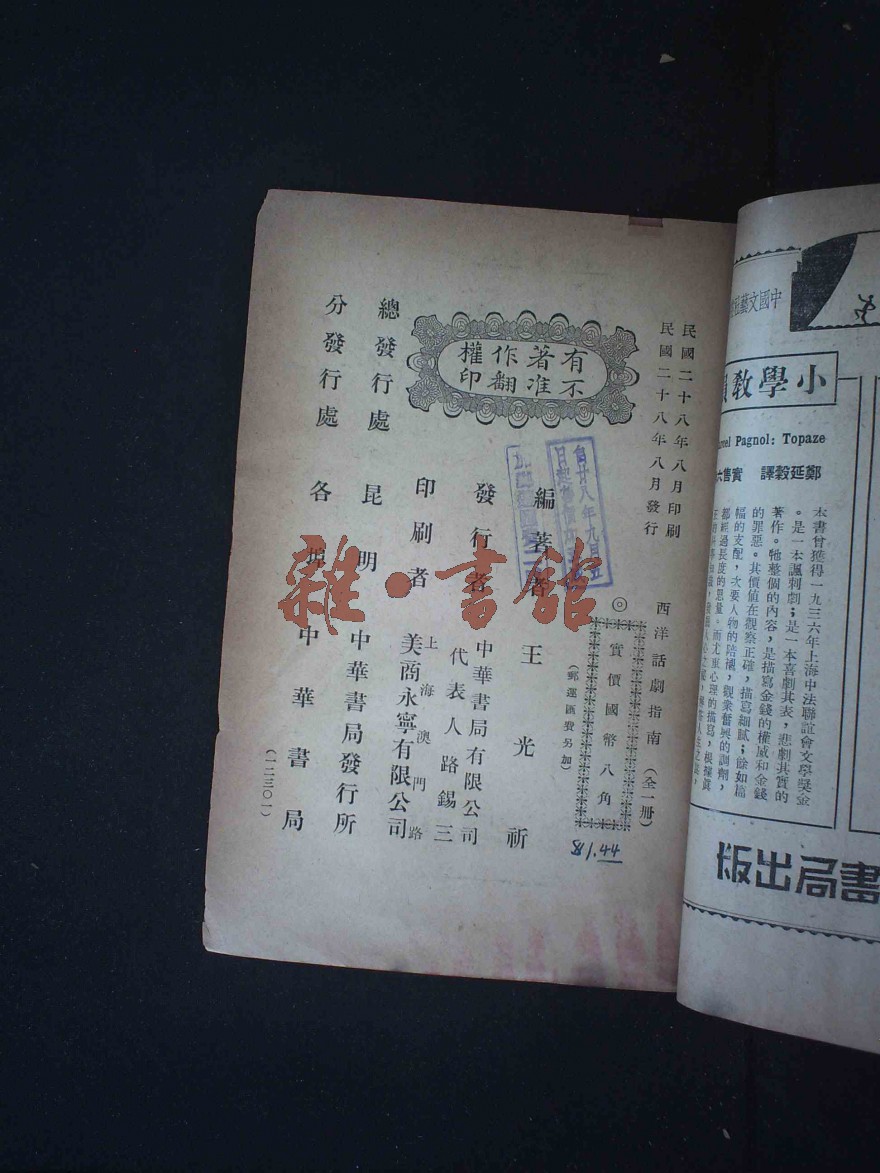 民國二十八年八月印刷
民國二十八年八月發行
西洋話劇指南（全一冊）
◎
實價國幣八角
（郵運匯費另加）
有著作權
不准翻印
編著者 王光祈
發行者 中華書局有限公司
代表人路錫三
印刷者 上海澳門路
美商永寧有限公司
總發行處 昆明 中華書局發行所
分發行處 各埠 中華書局
（一二三〇一）
自廿八年九月
雜·書館
中國文藝
小學教
Pagnol: Topaze
鄭延穀譯 實售
本書曾獲得一九三六年上海中法聯誼會文學獎金
。是一本諷刺劇；是一本喜劇其表，悲劇其實的
著作。牠整個的內容，是描寫金錢的權威和金錢
的罪惡。其價值在觀察正確，描寫細膩；餘如篇
幅的支配，次要人物的陪襯，觀衆奮興的調劑，
都經過長度的思量。而尤重心理的描寫，根據眞
書局出版